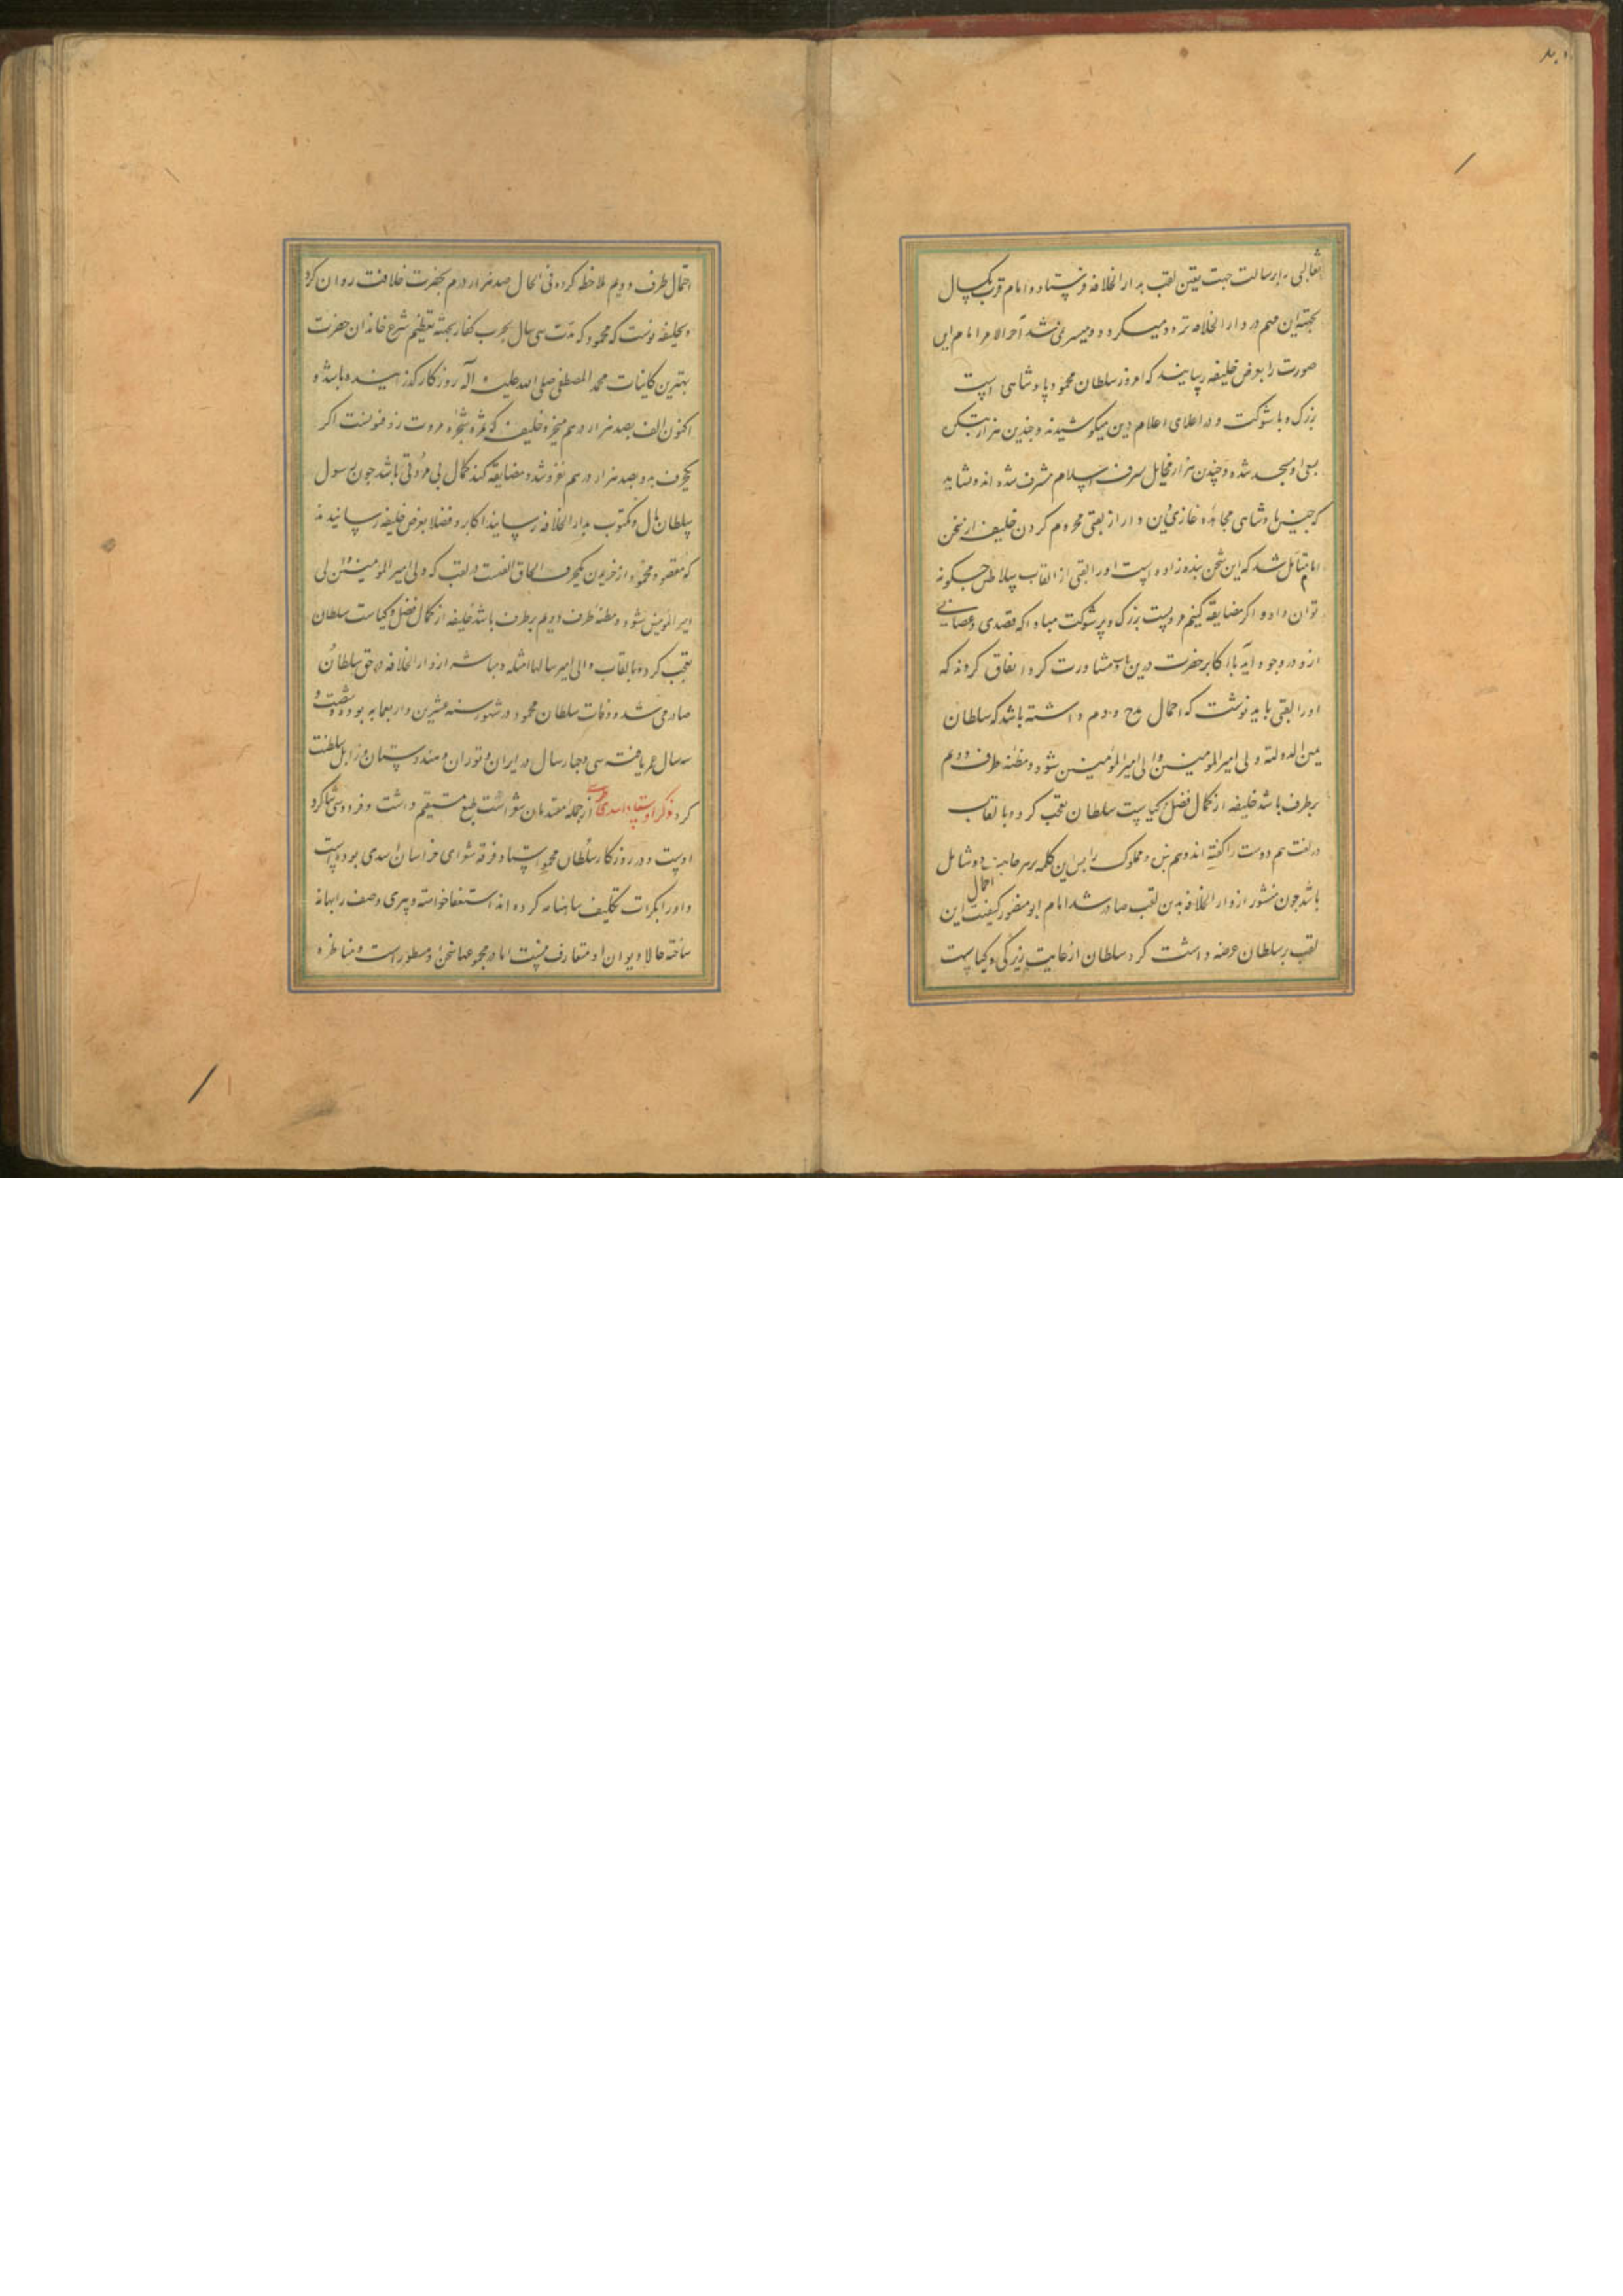 ثعالبی را برسالت جهت تعین لقب بدار الخلافه فرستاد و امام قرب یکسال
بجهت این مهم در دار الخلافه تردد میکرد و میسر نمی شد آخر الامر امام این
صورت را بعرض خلیفه رسانید که امروز سلطان محمود پادشاهی است
بزرگ و با شوکت و در اعلای اعلام دین میکوشید و چندین هزار بتکده
بسعی او مسجد شده و چندین هزار بشرف اسلام مشرف شده اند و نشاید
که چنین پادشاهی مجاهد و غازی دین دار از لقبی محروم کردن خلیفه از سخن
امام متأمل شد که این شخص بنده زاده است او را لقبی از القاب سلاطین چگونه
توان داد و اگر مضایقه کنیم مردیست بزرگ و پر شوکت مبادا که قصدی و عصیانی
ازو در وجود آید با اکابر حضرت درین باب مشاورت کرد اتفاق کردند که
او را لقبی باید نوشت که احتمال مدح و ذم داشته باشد که سلطان
یمین الدوله ولی امیر المومنین والی امیر المومنین شود و مظنه طرف دویم
بر طرف باشد خلیفه از کمال فضل و کیاست سلطان تعجب کرد و با لقاب
در لغت هم دوست را گفته اند و هم بنده و مملوک را پس این کلمه بر هر جانب دو شامل
احتمال
باشد چون منشور از دار الخلافه بدین لقب صادر شد امام ابو منصور کیفیت این
لقب بر سلطان عرضه داشت کرد سلطان از غایت زیرکی و کیاست
احتمال طرف دویم ملاحظه کرده فی الحال صد هزار درم بحضرت خلافت روان کرد
و بخلیفه نوشت که محمود که مدت سی سال بحرب کفار بجهة تعظیم شرع خاندان حضرت
بهترین کاینات محمد المصطفی صلی الله علیه و آله روزگار گذرانیده باشد و
اکنون الف بصد هزار درهم میخرد و خلیفه که ثمره شجره مروت و فتوتست اگر
یکحرف بدو بصد هزار درهم نفروشد و مضایقه کند کمال بی مروتی باشد چون رسول
سلطان مال و مکتوب بدار الخلافه رسانید اکابر و فضلا بعرض خلیفه رسانیدند
که مقصود محمود از خریدن یکحرف الحاق الفست در لقب که ولی امیر المومنین والی
امیر المومنین شود و مظنه طرف دویم بر طرف باشد خلیفه از کمال فضل و کیاست سلطان
تعجب کرده بالقاب والی امیر سالها امثله و مناشیر از دار الخلافه در حق سلطان
صادر می شد و وفات سلطان محمود در شهور سنه عشرین و اربعمایه بوده و شصت و
سه سال عمر یافت سی و چهار سال در ایران و توران و هندوستان و زابل سلطنت
کرد ذکر استاد اسدی طوسی از جمله متقدمان شعراست طبع مستقیم داشت و فردوسی شاگرد
اوست و در روزگار سلطان محمود استاد فرقه شعرای خراسان اسدی بوده است
و او را بکرات تکلیف شاهنامه کرده اند استعفا خواسته و پیری و ضعف را بهانه
ساخته حالا دیوان او متعارف نیست اما در مجموعها سخن او مسطور است و مناظره